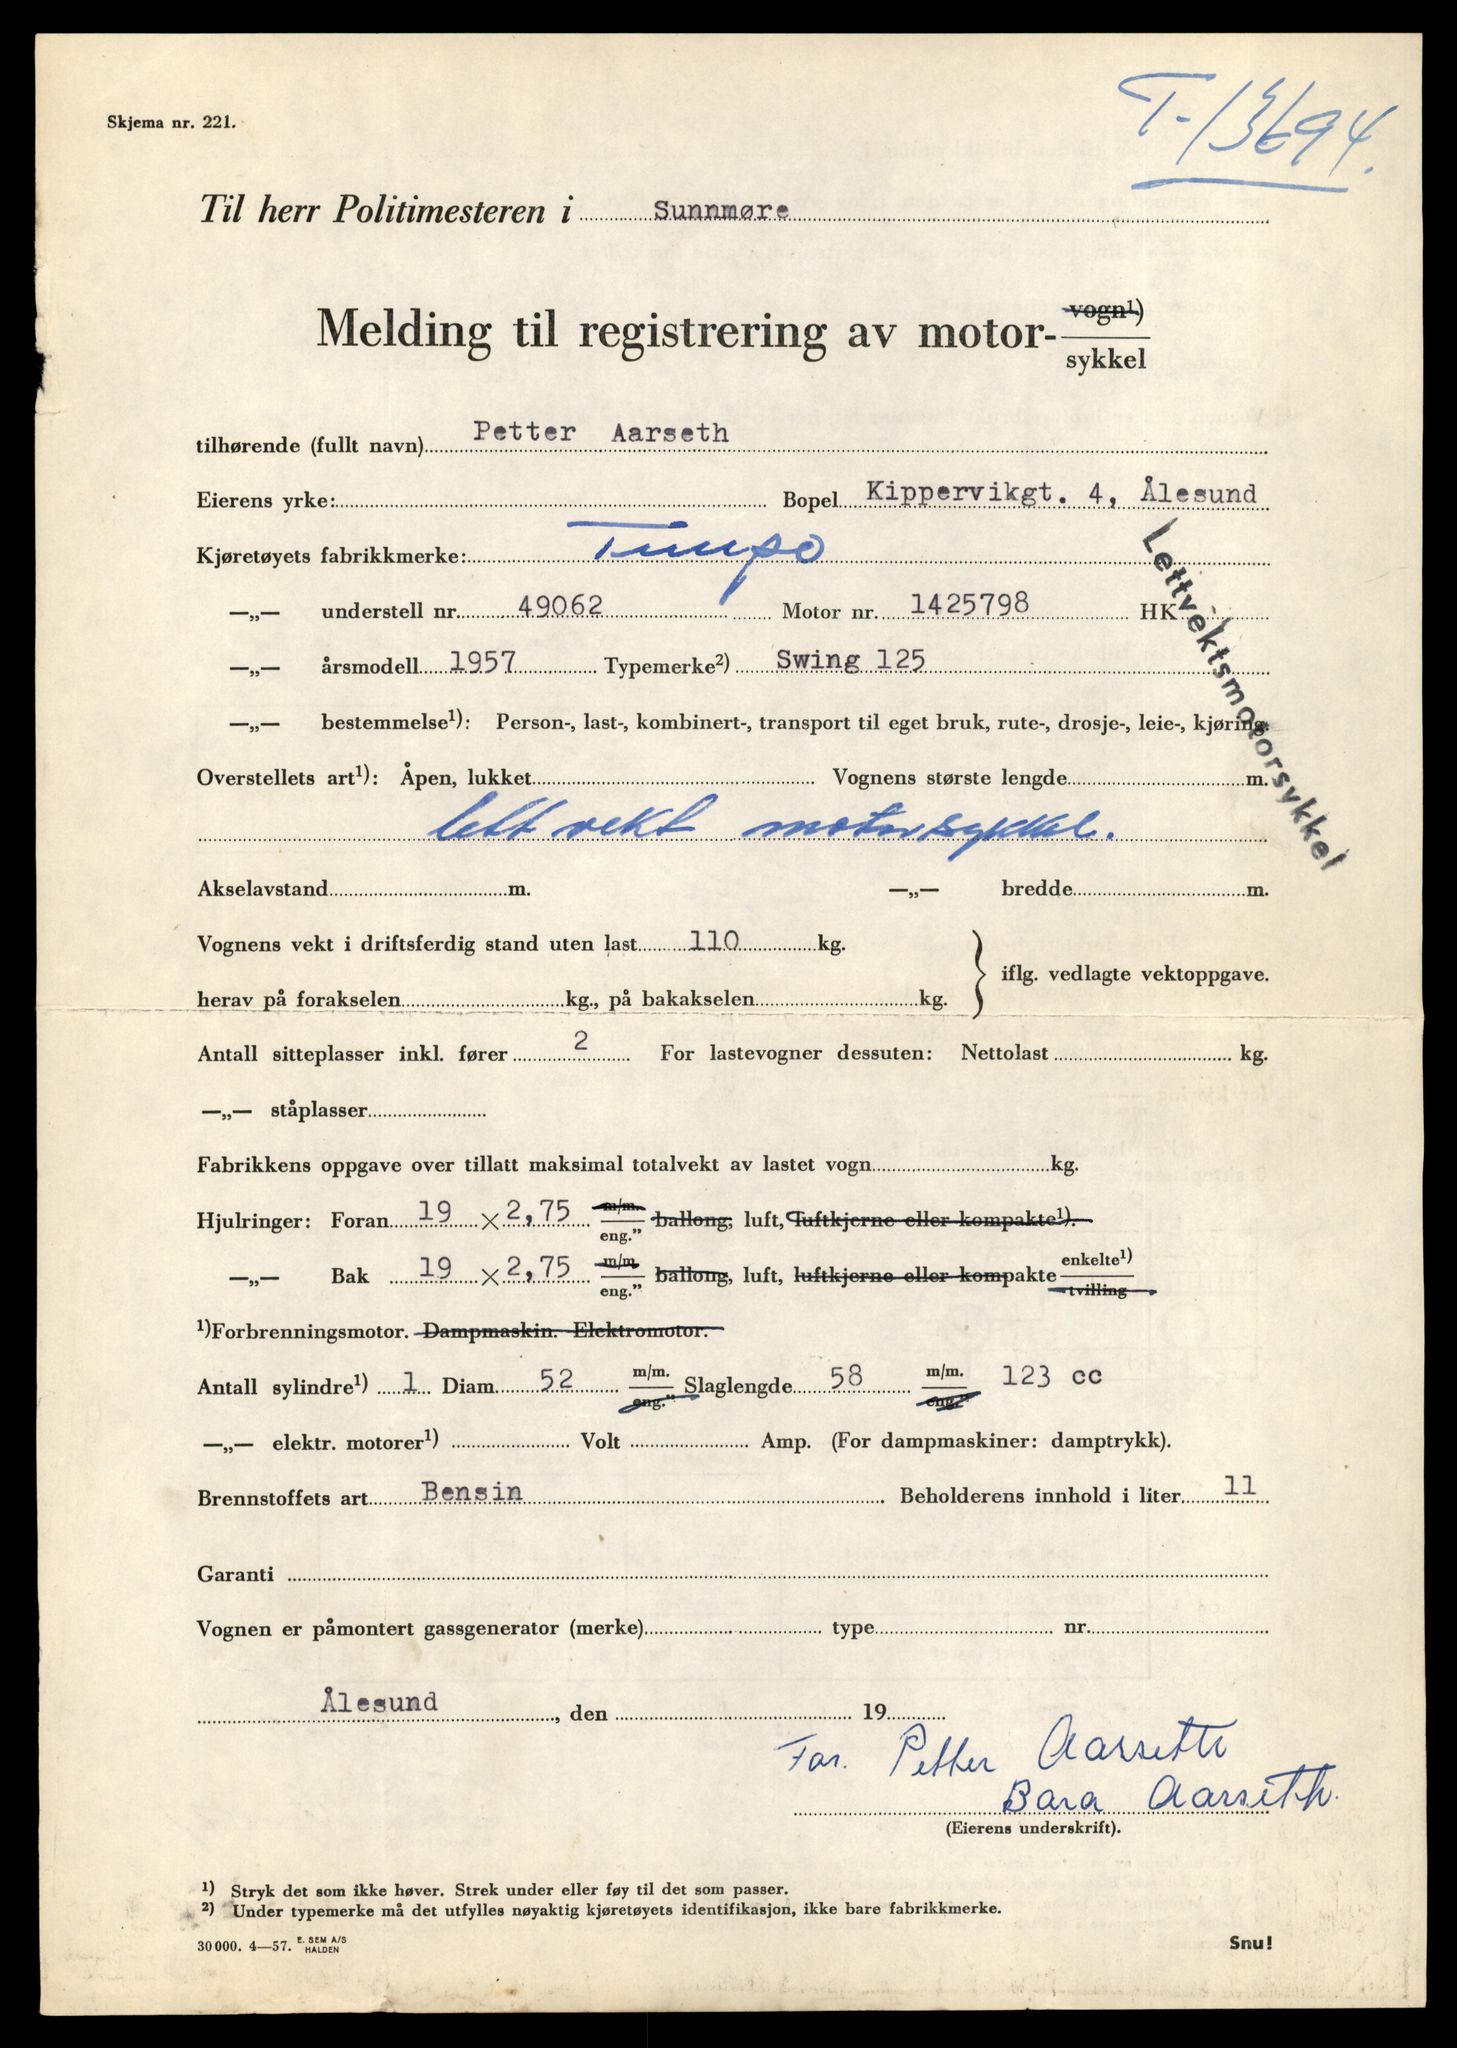 T-13694.
Skjema nr. 221.
Til herr Politimesteren i Sunnmøre
Melding til registrering av motor- vogn¹) / sykkel
tilhørende (fullt navn) Petter Aarseth
Eierens yrke: Bopel Kippervikgt. 4, Ålesund
Kjøretøyets fabrikkmerke: Tempo
—„— understell nr. 49062 Motor nr. 1425798 HK
—„— årsmodell 1957 Typemerke²) Swing 125
Lettvektsmotorsykkel
—„— bestemmelse¹): Person-, last-, kombinert-, transport til eget bruk, rute-, drosje-, leie-, kjøring.
Overstellets art¹): Åpen, lukket Vognens største lengde m.
lett vekt motorsykkel.
Akselavstand m. —„— bredde m.
Vognens vekt i driftsferdig stand uten last 110 kg.
herav på forakselen kg., på bakakselen kg. } iflg. vedlagte vektoppgave.
Antall sitteplasser inkl. fører 2 For lastevogner dessuten: Nettolast kg.
—„— ståplasser
Fabrikkens oppgave over tillatt maksimal totalvekt av lastet vogn kg.
Hjulringer: Foran 19 × 2,75 m/m. / eng.” ballong, luft, luftkjerne eller kompakte¹).
—„— Bak 19 × 2,75 m/m. / eng.” ballong, luft, luftkjerne eller kompakte enkelte¹) / tvilling
¹)Forbrenningsmotor. Dampmaskin. Elektromotor.
Antall sylindre¹) 1 Diam. 52 m/m. / eng.” Slaglengde 58 m/m. / eng.” 123 cc
—„— elektr. motorer¹) Volt Amp. (For dampmaskiner: damptrykk).
Brennstoffets art Bensin Beholderens innhold i liter 11
Garanti
Vognen er påmontert gassgenerator (merke) type nr.
Ålesund, den 19
For. Petter Aarseth
Bara Aarseth.
(Eierens underskrift).
¹) Stryk det som ikke høver. Strek under eller føy til det som passer.
²) Under typemerke må det utfylles nøyaktig kjøretøyets identifikasjon, ikke bare fabrikkmerke.
30 000. 4—57. E. SEM A/S HALDEN
Snu!